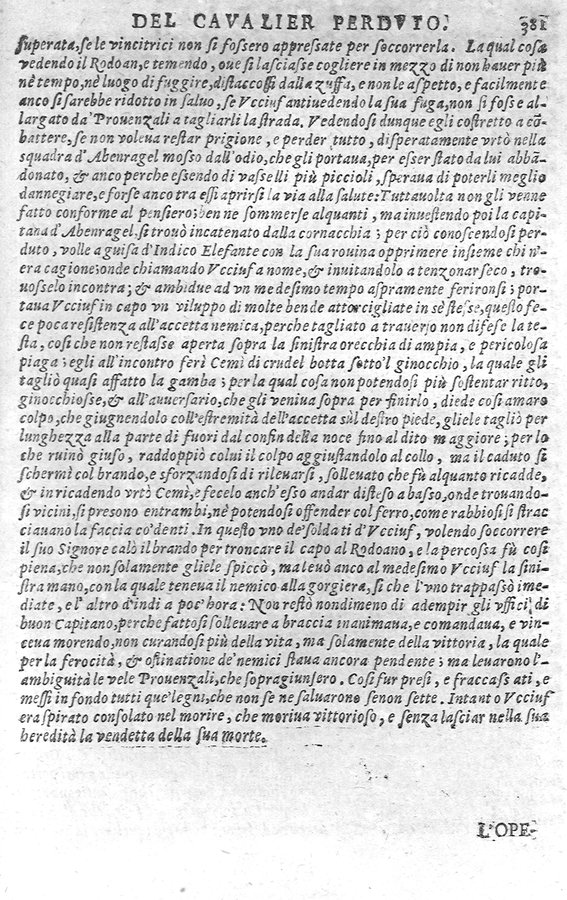 DEL CAVALIER PERDVTO. 381
superata, se le vincitrici non si fossero appressate per soccorrerla. La qual cosa
vedendo il Rodoan, e temendo, oue si lasciasse cogliere in mezzo di non hauer più
nè tempo, nè luogo di fuggire, distaccossi dalla zuffa, e non le aspettò, e facilmente
anco si sarebbe ridotto in saluo, se Vcciuf antiuedendo la sua fuga, non si fosse al-
largato da' Prouenzali a tagliarli la strada. Vedendosi dunque egli costretto a cō-
battere, se non voleua restar prigione, e perder tutto, disperatamente vrtò nella
squadra d'Abenragel mosso dall'odio, che gli portaua, per esser stato da lui abbā-
donato, & anco perche essendo di vasselli più piccioli, speraua di poterli meglio
dannegiare, e forse anco tra essi aprirsi la via alla salute: Tuttauolta non gli venne
fatto conforme al pensiero; ben ne sommerse alquanti, ma inuestendo poi la capi-
tana d'Abenragel si trouò incatenato dalla cornacchia; per ciò conoscendosi per-
duto, volle a guisa d'Indico Elefante con la sua rouina opprimere insieme chi n'-
era cagione; onde chiamando Vcciuf a nome, & inuitandolo a tenzonar seco, tro-
uosselo incontra; & ambidue ad vn medesimo tempo aspramente ferironsi; por-
taua Vcciuf in capo vn viluppo di molte bende attorcigliate in sè stesse, questo fe-
ce poca resistenza all'accetta nemica, perche tagliato a trauerso non difese la te-
sta, così che non restasse aperta sopra la sinistra orecchia di ampia, e pericolosa
piaga; egli all'incontro ferì Cemì di crudel botta sotto'l ginocchio, la quale gli
tagliò quasi affatto la gamba; per la qual cosa non potendosi più sostentar ritto,
ginocchiosse, & all'auuersario, che gli veniua sopra per finirlo, diede così amaro
colpo, che giugnendolo coll'estremità dell'accetta sùl destro piede, gliele tagliò per
lunghezza alla parte di fuori dal confin della noce fino al dito maggiore; per lo
che ruinò giuso, raddoppiò colui il colpo aggiustandolo al collo, ma il caduto si
schermì col brando, e sforzandosi di rileuarsi, solleuato che fù alquanto ricadde,
& in ricadendo vrtò Cemì, e fecelo anch'esso andar disteso a basso, onde trouando-
si vicini, si presono entrambi, nè potendosi offender col ferro, come rabbiosi si strac
ciauano la faccia co' denti. In questo vno de' soldati d'Vcciuf, volendo soccorrere
il suo Signore calò il brando per troncare il capo al Rodoano, e la percossa fù così
piena, che non solamente gliele spiccò, ma leuò anco al medesimo Vcciuf la sini-
stra mano, con la quale teneua il nemico alla gorgiera, si che l'vno trappassò ime-
diate, e l'altro d'indi a poc'hora: Non restò nondimeno di adempir gli vffici di
buon Capitano, perche fattosi solleuare a braccia inanimaua, e comandaua, e vin-
ceua morendo, non curandosi più della vita, ma solamente della vittoria, la quale
per la ferocità, & ostinatione de' nemici staua ancora pendente; ma leuarono l'-
ambiguità le vele Prouenzali, che sopragiunsero. Così fur presi, e fraccassati, e
messi in fondo tutti que' legni, che non se ne saluarono senon sette. Intanto Vcciuf
era spirato consolato nel morire, che moriua vittorioso, e senza lasciar nella sua
heredità la vendetta della sua morte.
L'OPE-